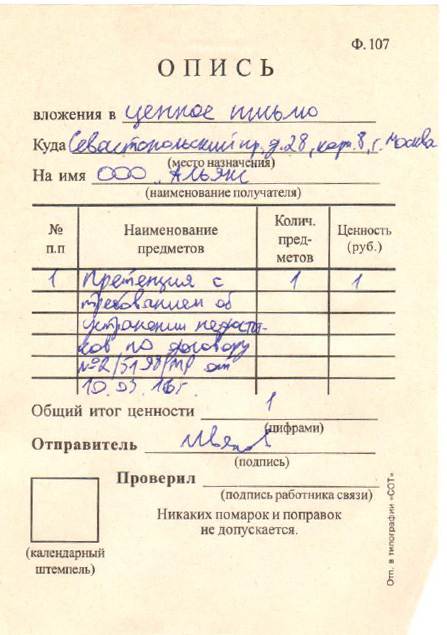 Ф. 107
ОПИСЬ
вложения в ценное письмо
Куда Севастопольский пр, д.28, кор.8, г. Москва
(место назначения)
На имя ООО "Альянс"
(наименование получателя)
№ п.п Наименование предметов Колич. пред-метов Ценность (руб.)
1 Претензия с 1 1
требованием об
устранении недостат-
ков по договору
№2/5198/ПР от
10.03.16г.
Общий итог ценности 1
(цифрами)
Отправитель
(подпись)
Проверил
(подпись работника связи)
Никаких помарок и поправок
не допускается.
(календарный
штемпель)
Отп. в типографии «СОТ»